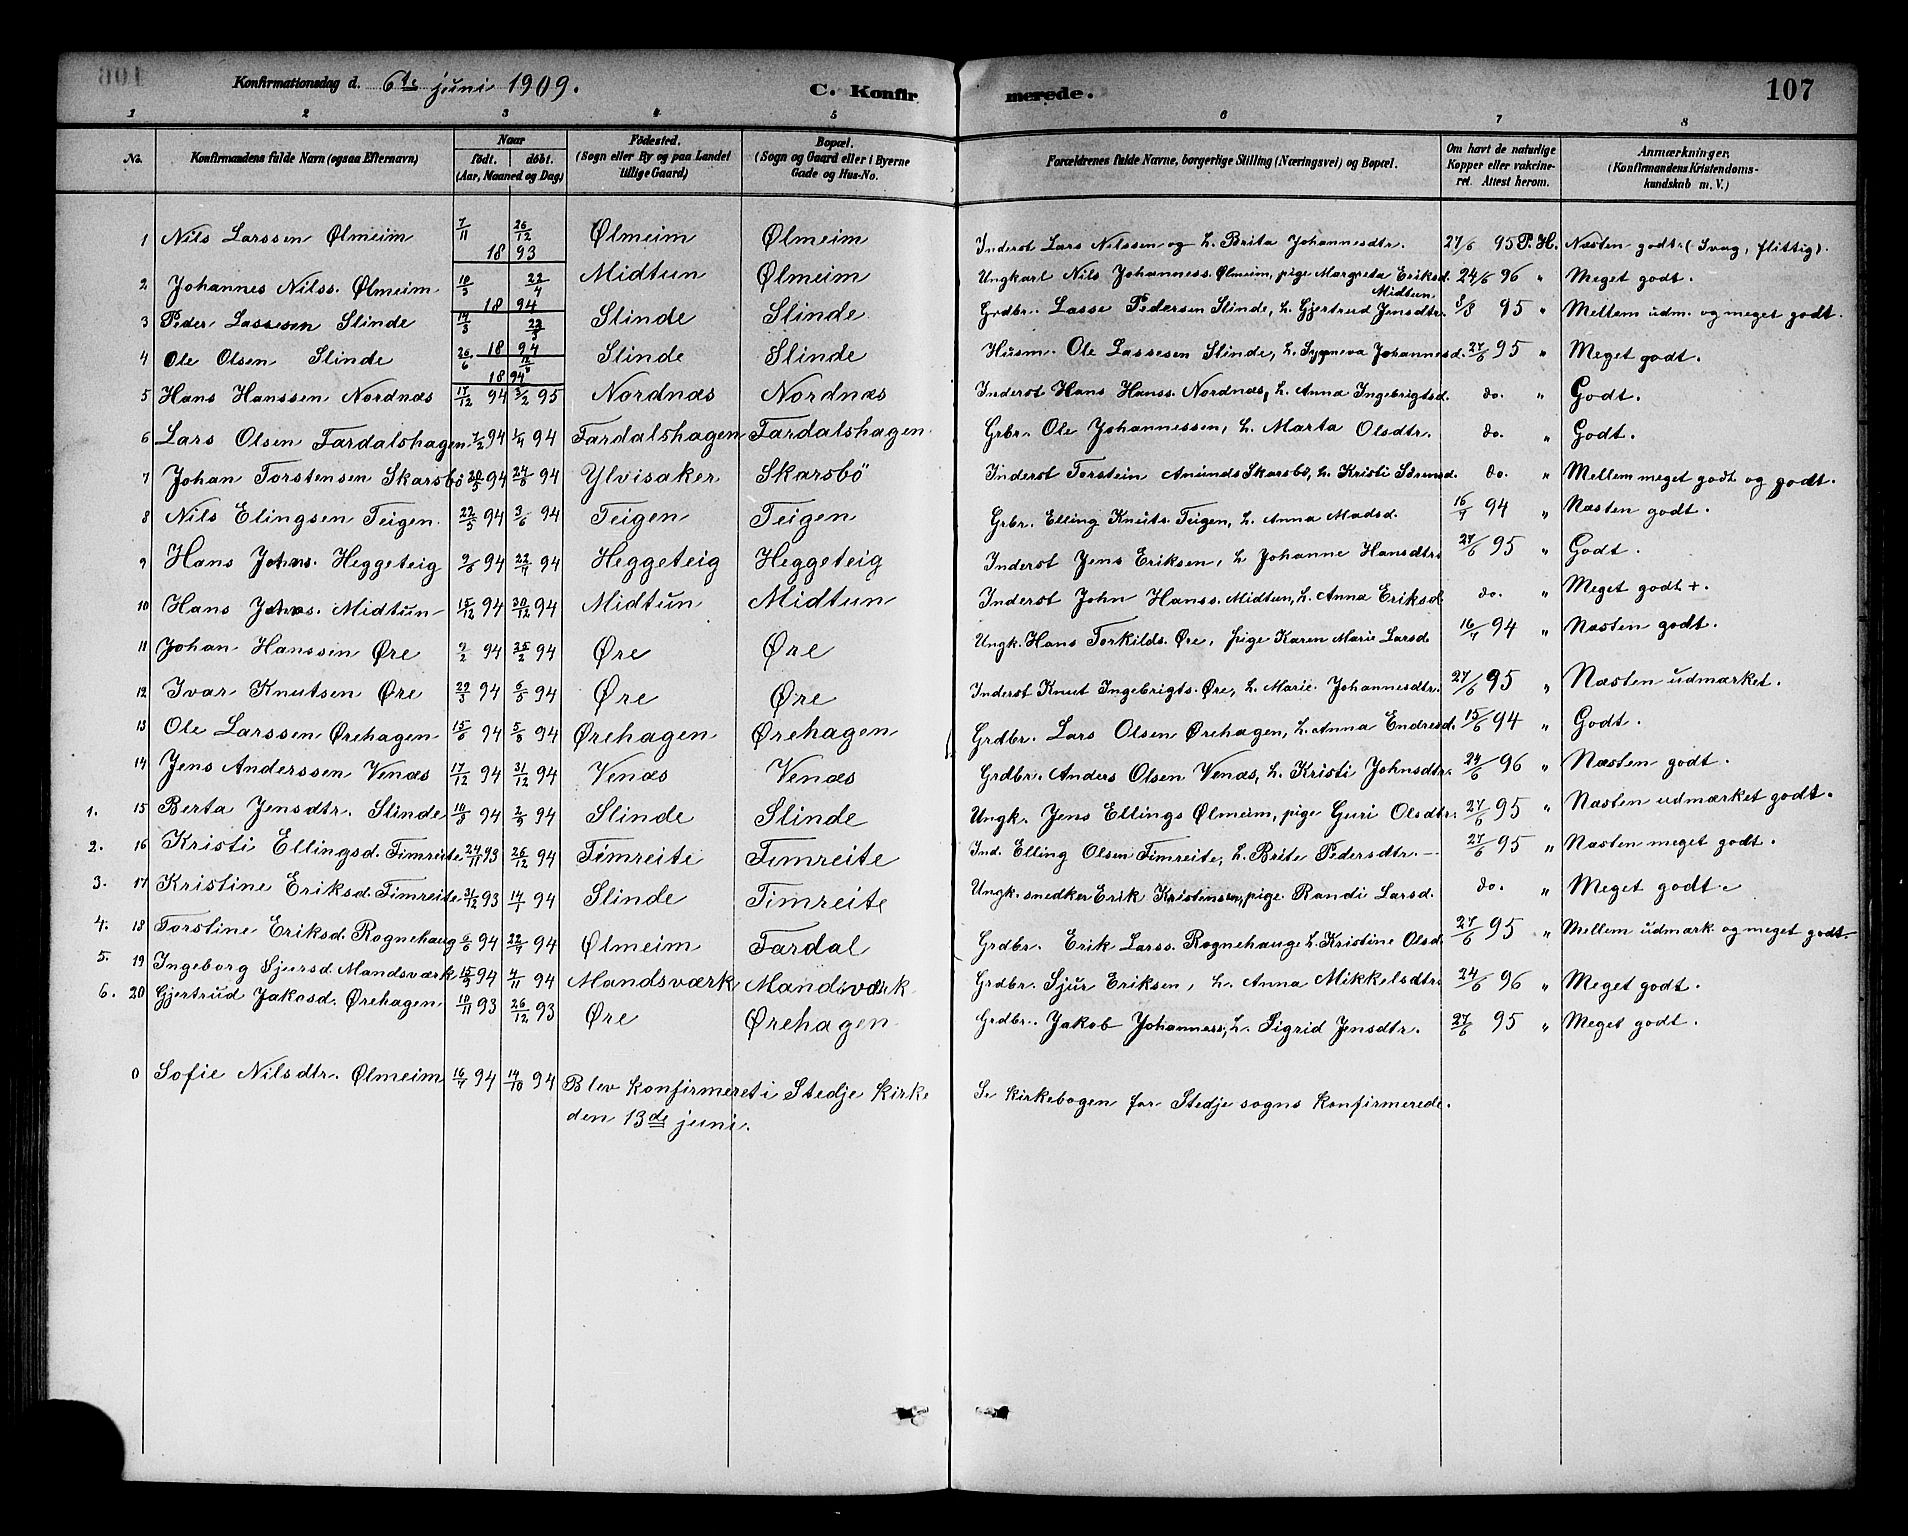 Konfirmationsdag d. 6te juni 1909. C. Konfirmerede. 107
1 2 3 4 5 6 7 8
No. Konfirmandens fulde Navn (ogsaa Efternavn) Naar født. døbt. (Aar, Maaned og Dag) Fødested. (Sogn eller By og paa Landet tillige Gaard) Bopæl. (Sogn og Gaard eller i Byerne Gade og Hus-No. Forældrenes fulde Navne, borgerlige Stilling (Næringsvei) og Bopæl. Om havt de naturlige Kopper eller vakcineret. Attest herom. Anmærkninger. (Konfirmandens Kristendomskundskab m. V.)
1 Nils Larssen Ølmeim 7/11 26/12 1893 Ølmeim Ølmeim Inderst Lars Nilssen og h. Brita Johannesdtr. 27/6 95 P.H. Næsten godt. (Svag, flittig).
2 Johannes Nilss. Ølmeim 10/3 22/4 1894 Midtun Ølmeim Ungkarl Nils Johanness. Ølmeim, pige Margreta Eriksd. Midtun 24/6 96 " Meget godt.
3 Peder Lassesen Slinde 14/3 1894 Slinde Slinde Grdbr. Lasse Pedersen Slinde, h. Gjertrud Jensdtr. 3/8 95 " Mellem udm. og meget godt.
4 Ole Olsen Slinde 26/6 1894 Slinde Slinde Husm. Ole Lassesen Slinde, h. Sygneva Johannesd. 27/6 95 " Meget godt.
5 Hans Hanssen Nordnæs 17/12 94 3/2 95 Nordnæs Nordnæs Inderst Hans Hanss. Nordnæs, h. Anna Ingebrigtsd. do. " Godt.
6 Lars Olsen Fardalshagen 94 94 Fardalshagen Fardalshagen. Grbr. Ole Johannessen, h. Marta Olsdtr. do. " Godt.
7 Johan Torstensen Skarsbø 94 94 Ylvisaker Skarsbø Inderst Torstein Anunds Skarsbø, h. Kristi do. " Mellem meget godt og godt.
8 Nils Elingsen Teigen. 94 3/6 94 Teigen Teigen Grbr. Elling Knuts. Teigen, h. Anna Madsd. 16/7 94 " Næsten godt.
9 Hans Johns. Heggeteig 94 94 Heggeteig Heggeteig Inderst Jens Eriksen, h Johanne Hansdtr. 27/6 95 " Godt.
10 Hans Johns. Midtun 15/12 94 30/12 94 Midtun Midtun Inderst John Hanss. Midtun, h. Anna Eriksd do. " Meget godt +.
11 Johan Hanssen Øre 9/2 94 25/2 94 Øre Øre Ungk. Hans Torkilds. Øre, pige Karen Marie Larsd. 16/7 94 " Næsten godt.
12 Ivar Knutsen Øre 94 94 Øre Øre Inderst Knut Ingebrigts. Øre, h. Marie Johannesdtr. 27/6 95 " Næsten udmærket.
13 Ole Larssen Ørehagen 94 94 Ørehagen Ørehagen Grdbr. Lars Olsen Ørehagen, h. Anna Endresd. 15/6 94 " Godt.
14 Jens Anderssen Venæs 17/12 94 31/12 94 Venæs Venæs Grdbr. Anders Olsen Venæs, h. Kristi Johnsdtr. 24/6 96 " Næsten godt.
1. 15 Berta Jensdtr. Slinde 94 94 Slinde Slinde Ungk. Jens Ellings Ølmeim, pige Guri Olsdtr. 27/6 95 " Næsten udmærket godt.
2. 16 Kristi Ellingsd. Timreite 24/11 93 26/12 94 Timreite Timreite Ind. Elling Olsen Timreite, h. Brite Pedersdtr. — 27/6 95 " Næsten meget godt.
3. 17 Kristine Eriksd. Timreite 31/12 93 14/1 94 Slinde Timreite Ungk. snedker Erik Kristensen, pige Randi Larsd. do. " Meget godt.
4. 18 Torstine Eriksd. Rognehaug 94 94 Ølmeim Fardal Grdbr. Erik Larss. Rognehaug h. Kristine Olsd. 27/6 95 " Mellem udmærk. og meget godt.
5. 19 Ingeborg Sjursd. Mandsværk 94 4/11 94 Mandsværk Mandsværk Grdbr. Sjur Eriksen, h. Anna Mikkelsdtr. 24/6 96 " Meget godt.
6. 20 Gjertrud Jakobsd. Ørehagen 10/11 93 26/12 93 Øre Ørehagen Grdbr. Jakob Johanness., h. Sigrid Jensdtr. 27/6 95 " Meget godt.
0 Sofie Nilsdtr. Ølmeim 94 14/10 94 Blev konfirmeret i Stedje kirke Se kirkebogen for Stedje sogns konfirmerede.
den 13de juni.